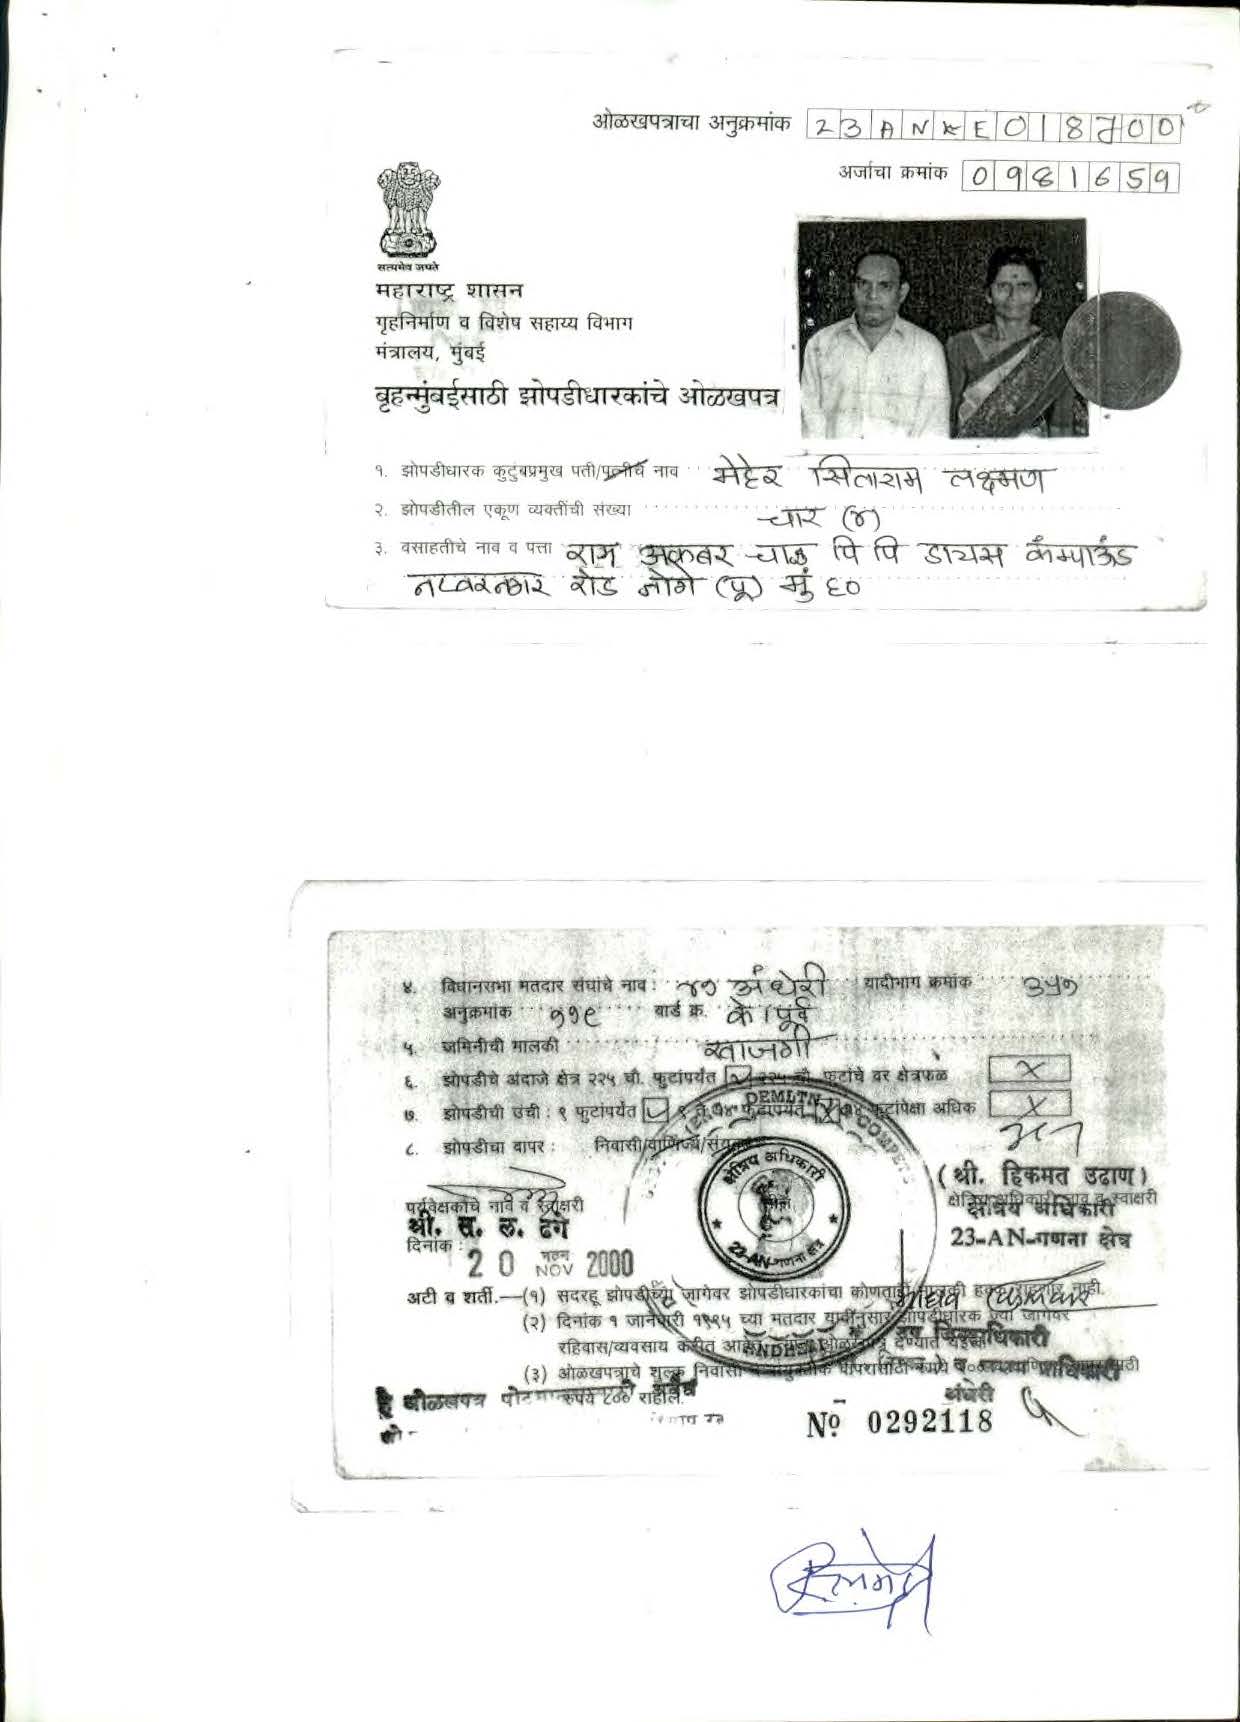 ओळखपत्राचा अनुक्रमांक 23ANKE018700
अर्जाचा क्रमांक 0981659
सत्यमेव जयते
महाराष्ट्र शासन
गृहनिर्माण व विशेष सहाय्य विभाग
मंत्रालय, मुंबई
बृहन्मुंबईसाठी झोपडीधारकांचे ओळखपत्र
१. झोपडीधारक कुटुंबप्रमुख पती/पत्नीचे नाव मेहेर सिताराम लक्ष्मण
२. झोपडीतील एकूण व्यक्तींची संख्या चार (४)
३. वसाहतीचे नाव व पत्ता राम अकबर चाळ पि पि डायस कँम्पाऊंड
नटवरनगर रोड जोगे (पू) मुं ६०
४. विधानसभा मतदार संघांचे नाव : ४७ अंधेरी यादीभाग क्रमांक ३५७
अनुक्रमांक ११९ वार्ड क्र. के/पूर्व
५. जमिनीची मालकी खाजगी
६. झोपडीचे अंदाजे क्षेत्र २२५ चौ. फुटांपर्यंत २२५ चौ. फुटांचे वर क्षेत्रफळ X
७. झोपडीची उंची : ९ फुटांपर्यंत ९ ते १४ फुटांपर्यंत X १४ फुटांपेक्षा अधिक X
८. झोपडीचा वापर : निवासी/वाणिज्य/संयुक्त
क्षेत्रिय अधिकारी
23-AN-गणना क्षेत्र
(श्री. हिकमत उढाण)
पर्यवेक्षकाचे नाव व स्वाक्षरी क्षेत्रिय अधिकारी नाव व स्वाक्षरी
श्री. स. ल. ढगे क्षेत्रिय अधिकारी
दिनांक : 23-AN-गणना क्षेत्र
20 NOV 2000
अटी व शर्ती.—(१) सदरहू झोपडीच्या जागेवर झोपडीधारकांचा कोणताही मालकी हक्क राहणार नाही.
(२) दिनांक १ जानेवारी १९९५ च्या मतदार यादीनुसार झोपडीधारक ज्या जागेवर
रहिवास/व्यवसाय करीत आहे ओळखपत्र देण्यात
उप जिल्हाधिकारी
(३) ओळखपत्राचे शुल्क निवासी वापरासाठी रुपये
रुपये २०० राहील.
प्राधिकारी
अंधेरी
हे ओळखपत्र
No 0292118